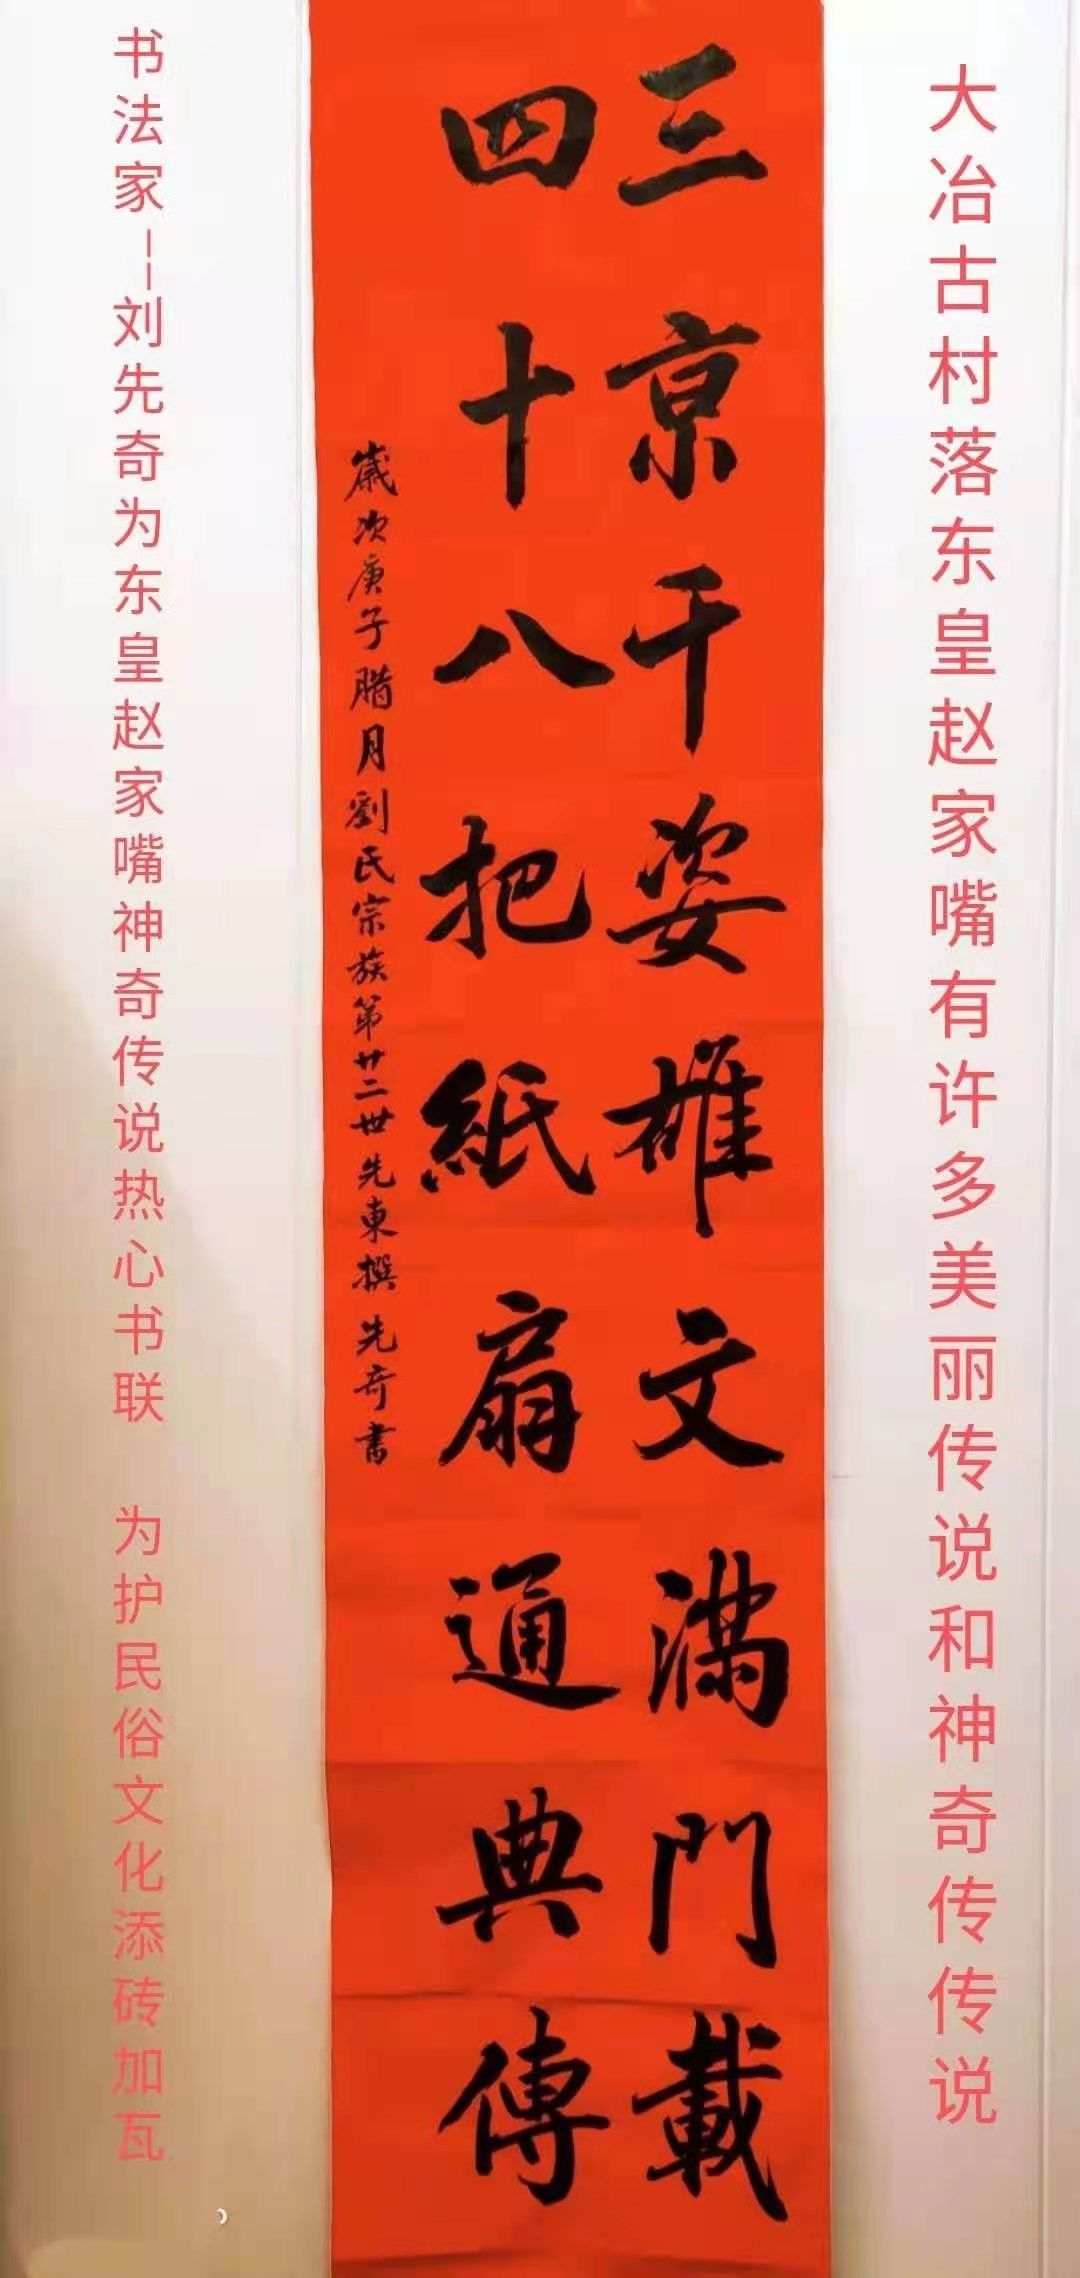 大冶古村落东皇赵家嘴有许多美丽传说和神奇传传说
三京千姿雄文滿門載
四十八把紙扇通典傳
歲次庚子腊月劉氏宗族第廿二世先東撰先奇書
书法家--刘先奇为东皇赵家嘴神奇传说热心书联 为护民俗文化添砖加瓦